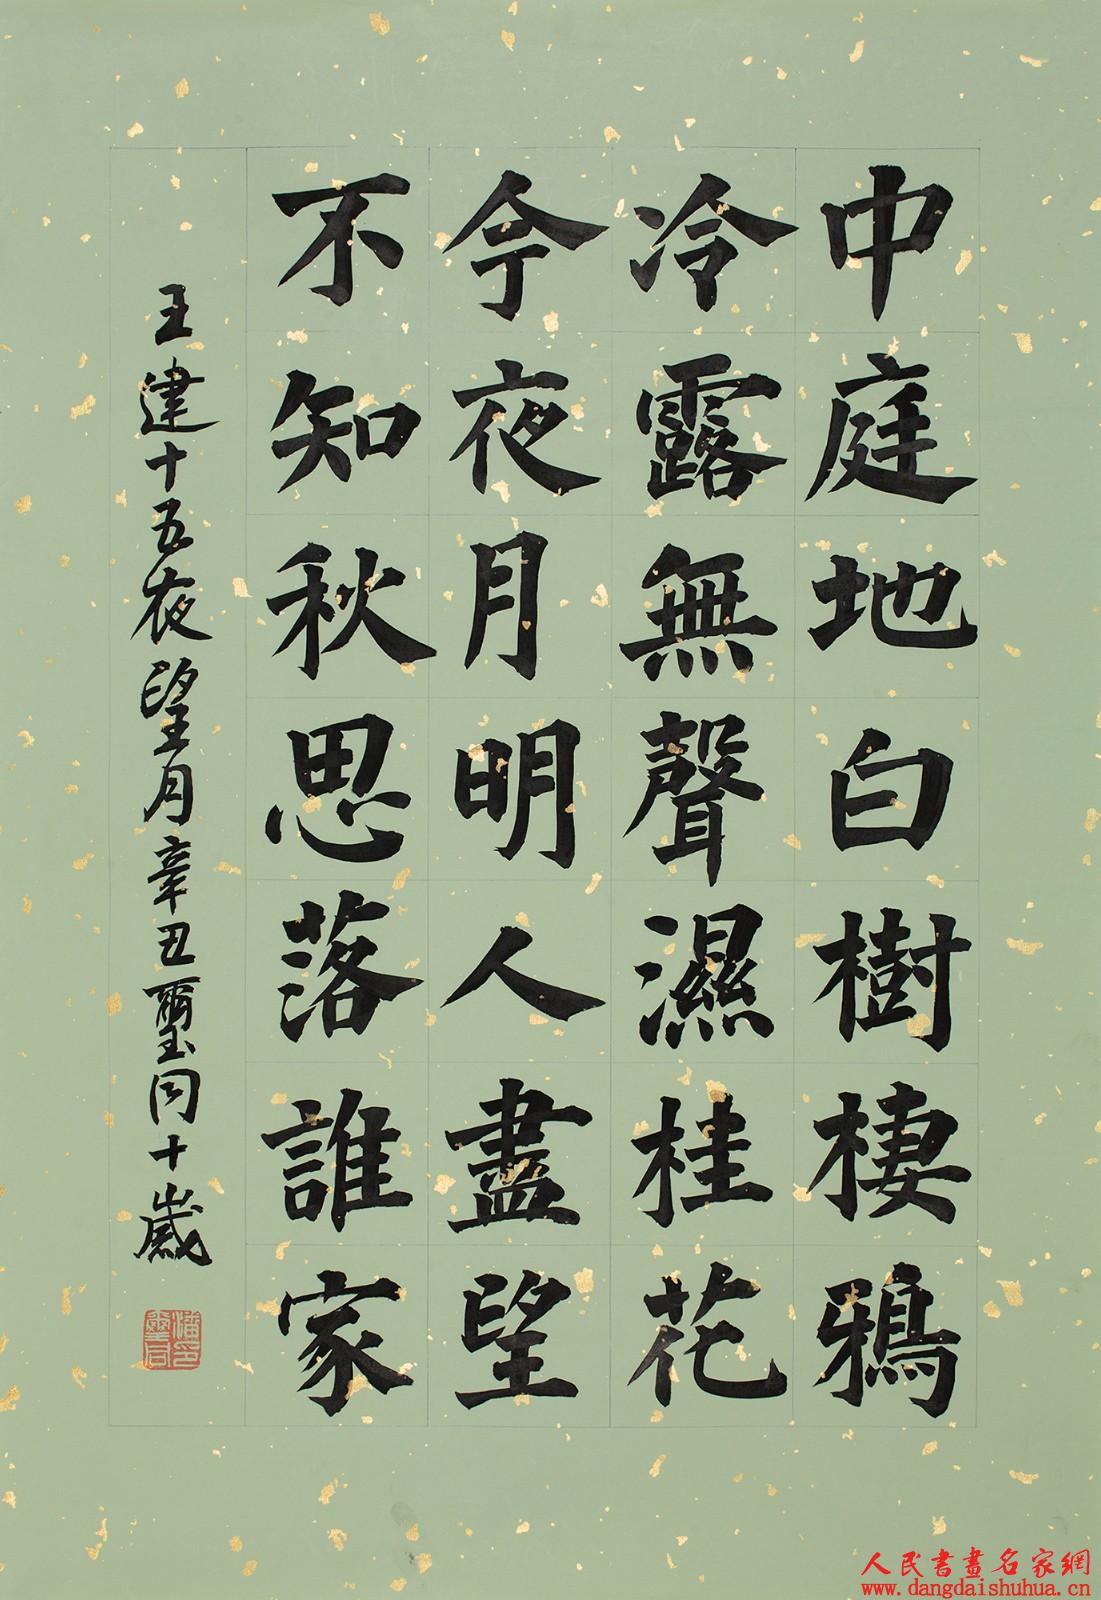 中庭地白樹棲鴉
冷露無聲濕桂花
今夜月明人盡望
不知秋思落誰家
王建十五夜望月辛丑璽同十歲
人民書畫名家網
www.dangdaishuhua.cn